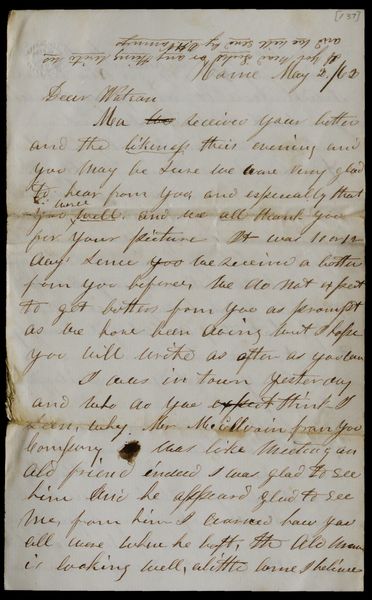 [137]
If you need funds or any thing write us
and we will send by
Home May 2/62
Dear Watson
Ma has received your letter
and the likeness this evening and
you may be sure we ware very glad
to hear from you, and especially that
you were well. and we all thank you
for your picture It was
days since you we received a letter
from you before, We do not expect
to get letters from you as prompt
as we have been doing but I hope
you will write as often as you can
I was in town yesterday
and who do you expect think I
seen, why Mr McIlvain from you
Company, it was like meeting an
old friend indeed I was glad to see
him and he appeard glad to see
me, from him I learned how you
all were when he left, the old man
is looking well, a little worse I believe